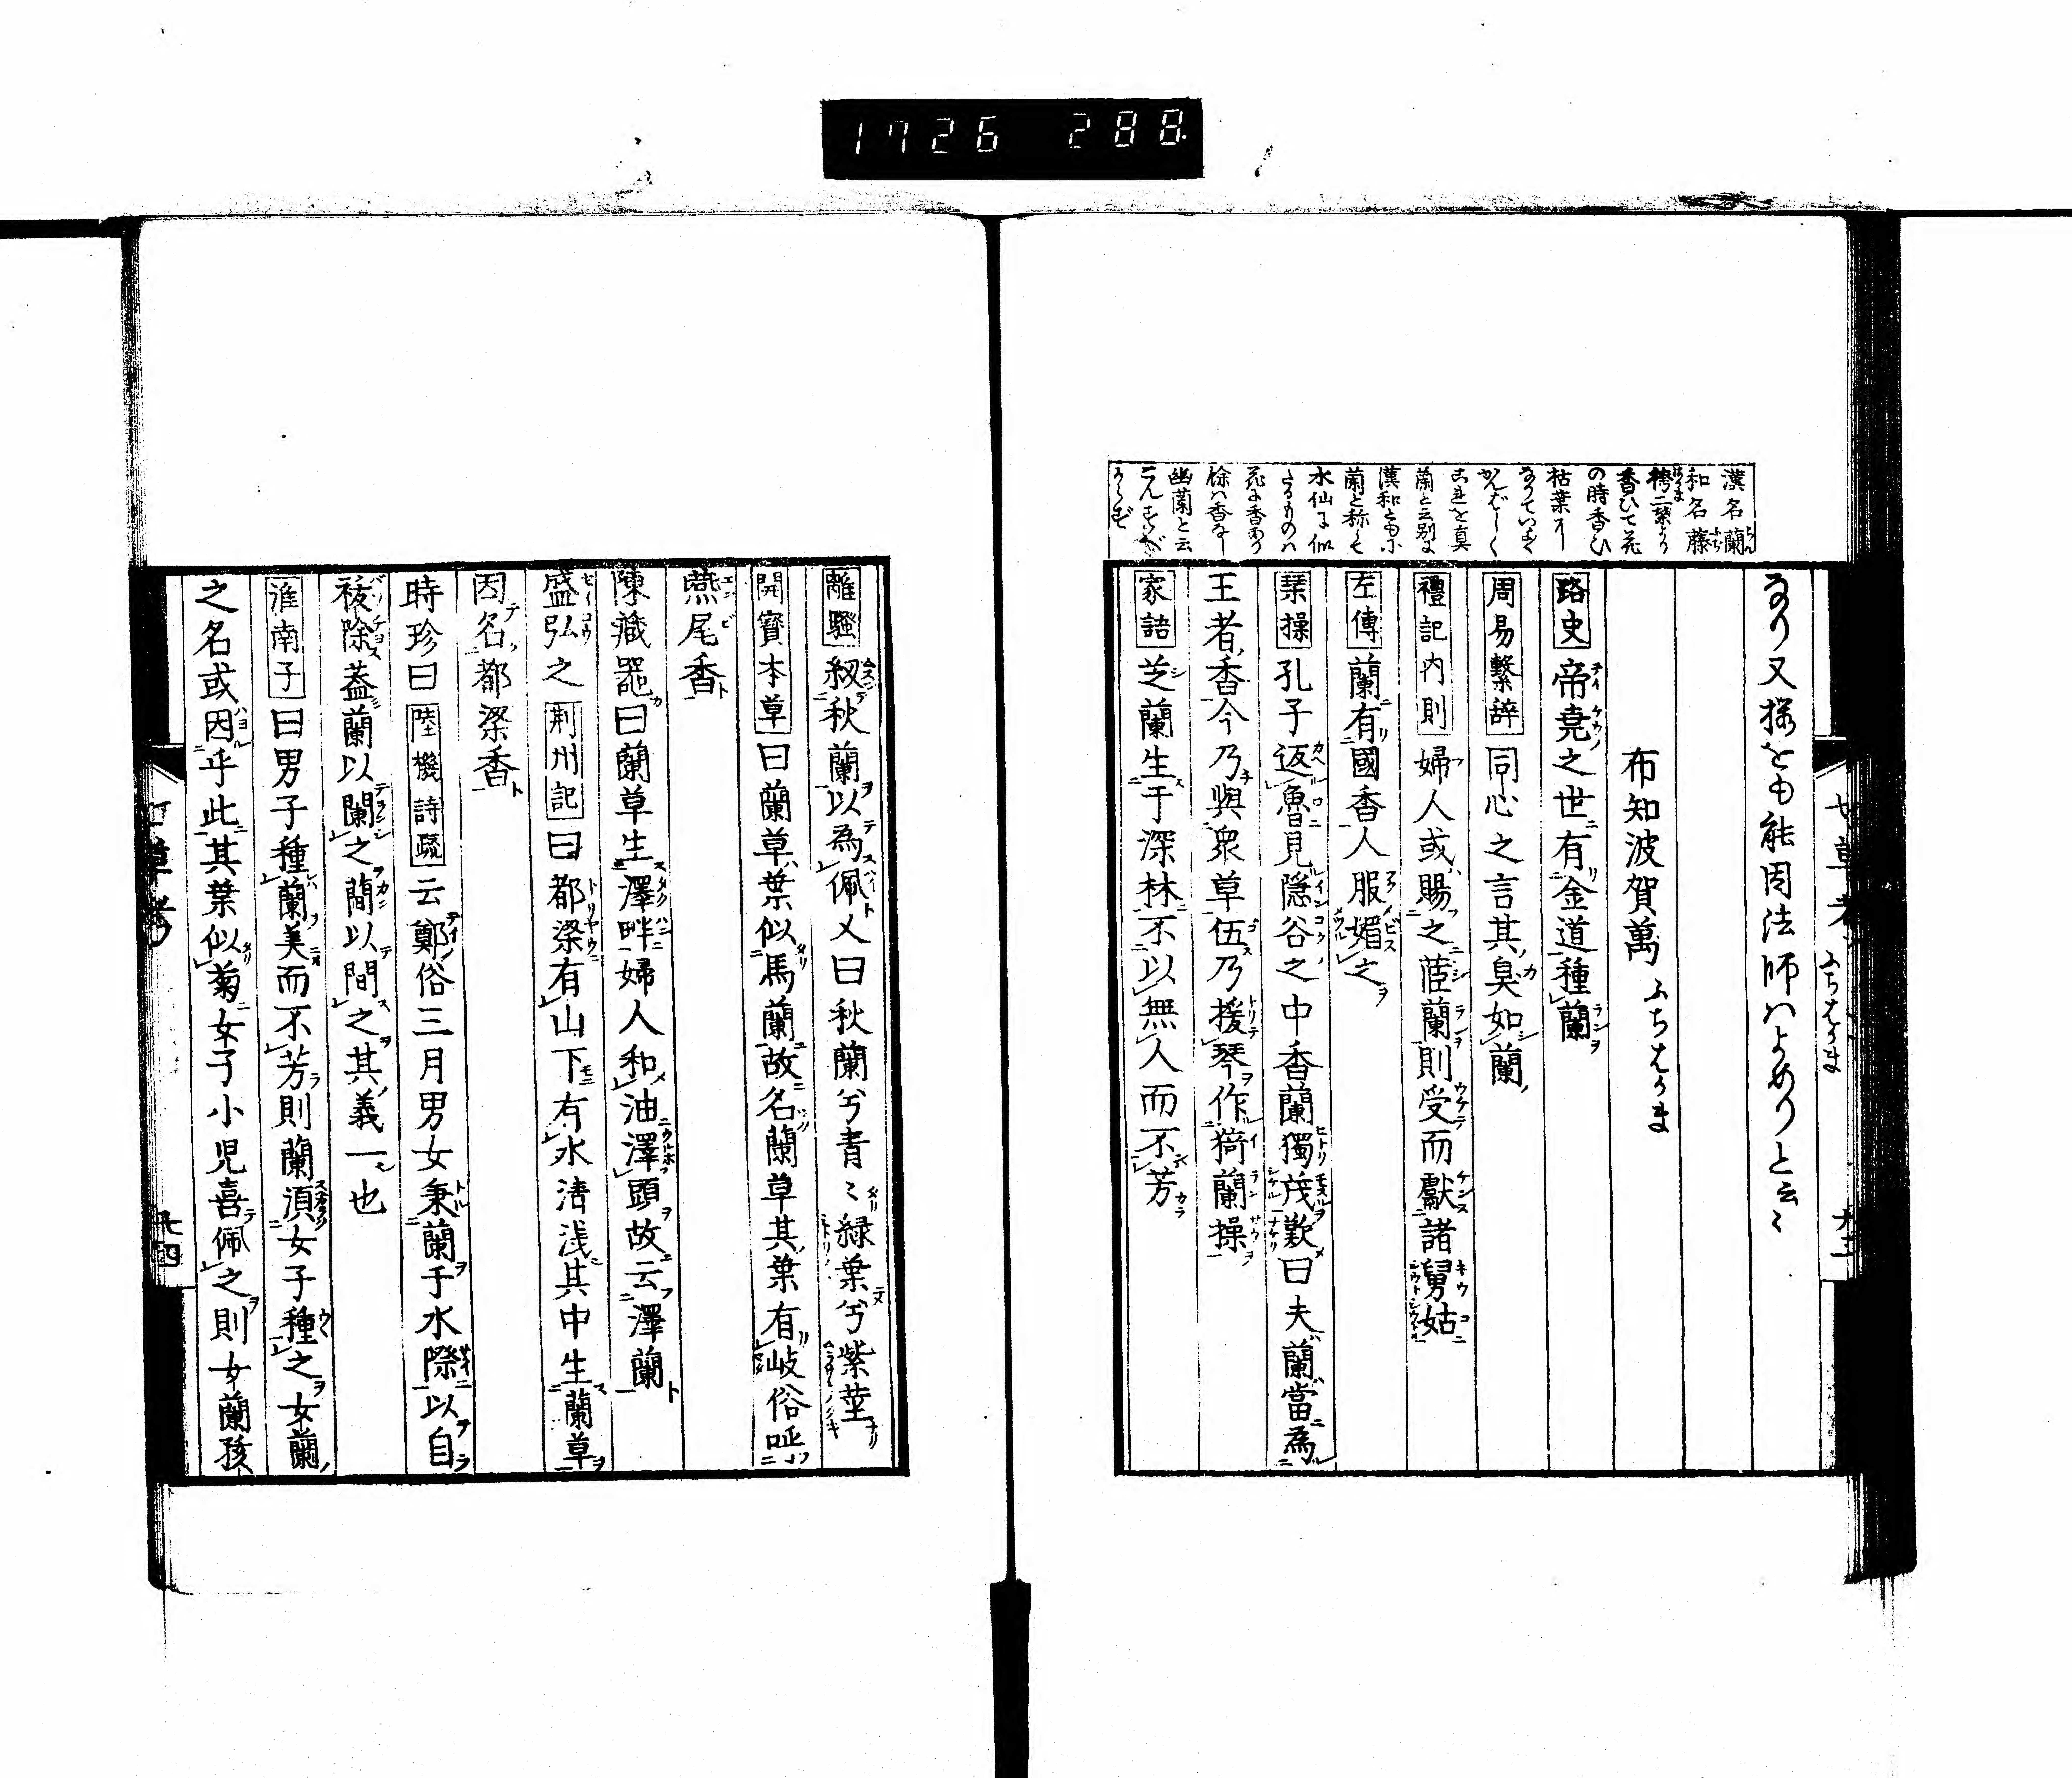 1726 288
漢名蘭
和名藤
袴二葉より
香ひて花
の時香ひ
枯葉に
なりていよ〳〵
かんばしく
これを真
蘭と云別に
漢和ともに
蘭と称して
水仙に似
たるものハ
花に香あり
餘ハ香なし
幽蘭と云
七草考 ふちはかま
なり又操をも能因法師ハよめりと云〻
布知波賀萬 ふちはかま
路史 帝堯之世有金道種蘭
周易繫辞 同心之言其臭如蘭
禮記内則 婦人或賜之茝蘭則受而獻諸舅姑
左傳 蘭有國香人服媚之
琹操 孔子返魯見隠谷之中香蘭獨茂歎曰夫蘭當為
王者香今乃與衆草伍乃援琴作猗蘭操
家語 芝蘭生于深林不以無人而不芳
離騷 紉秋蘭以為佩又曰秋蘭兮青〻緑葉兮紫莖
開寳本草 曰蘭草葉似馬蘭故名蘭草其葉有岐俗呼
燕尾香
陳藏器曰蘭草生澤畔婦人和油澤頭故云澤蘭
盛弘之 荆州記 曰都梁有山下有水清浅其中生蘭草
因名都梁香
時珍曰 陸機詩疏 云鄭俗三月男女秉蘭于水際以自
祓除蓋蘭以闌之蕑以間之其義一也
淮南子 曰男子種蘭美而不芳則蘭湏女子種之女蘭
之名或因乎此其葉似菊女子小児喜佩之則女蘭孩
草考
廿四